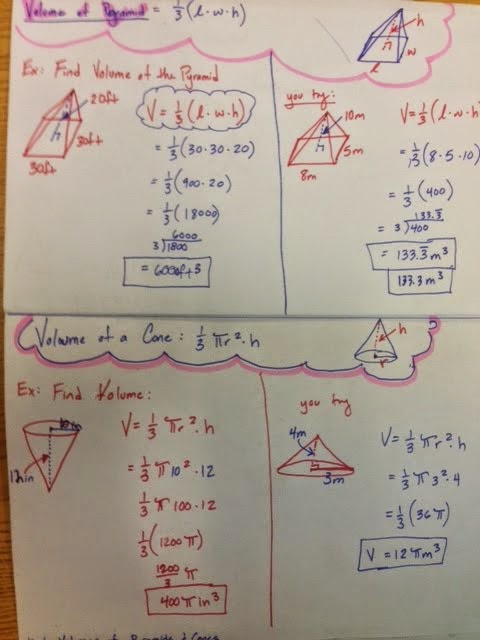 Volume of Pyramid = 1/3 (l·w·h)
h
w
l
Ex: Find Volume of the Pyramid
20ft
h
30ft
30ft
V = 1/3 (l·w·h)
= 1/3 (30·30·20)
= 1/3 (900·20)
= 1/3 (18000)
6000
3)1800
= 6000ft3
you try:
10m
h
5m
8m
V = 1/3 (l·w·h)
= 1/3 (8·5·10)
= 1/3 (400)
133.3̅
= 3)400
= 133.3̅ m³
133.3 m³
Volume of a Cone: 1/3 πr²·h
h
r
Ex: Find Volume:
12in
V = 1/3 πr²·h
= 1/3 π10²·12
1/3 π 100·12
1/3 (1200π)
1200/3 π
400π in³
you try
4m
3m
V = 1/3 πr²·h
= 1/3 π 3²·4
= 1/3 (36π)
V = 12πm³